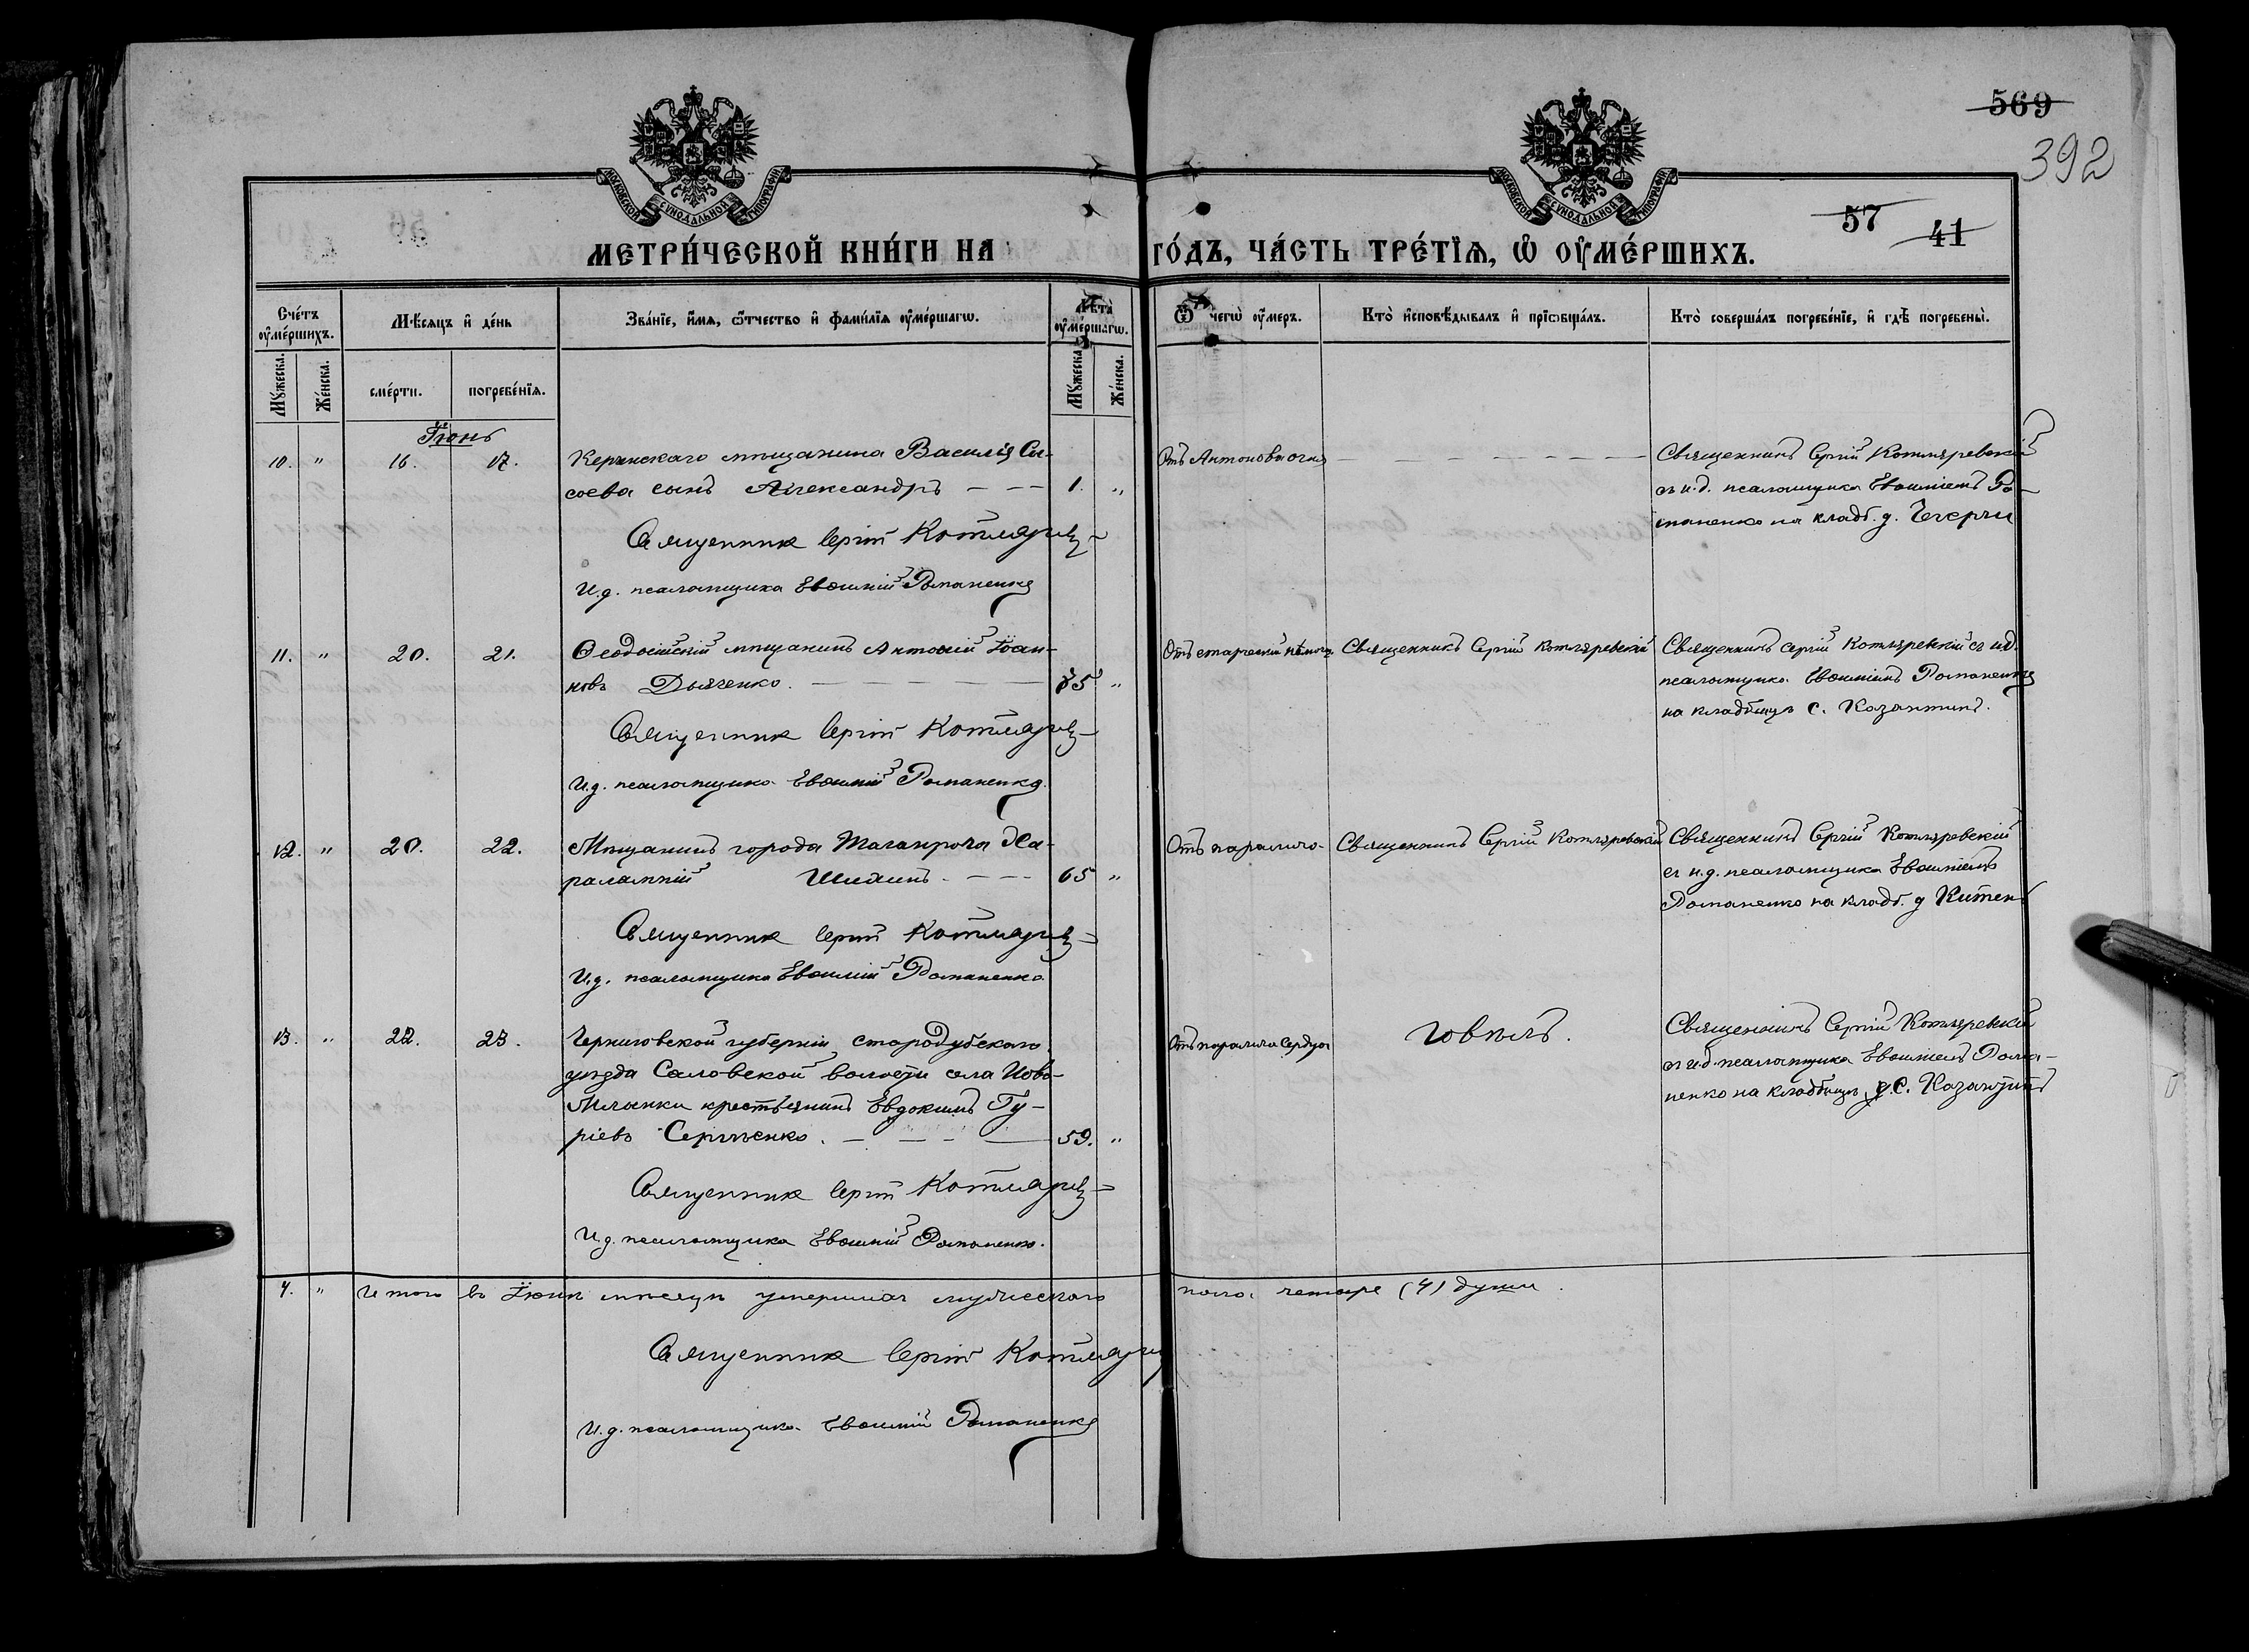 569
392
57 41
МОСКОВСКОЙ СУНОДАЛЬНОЙ ТИПОГРАФІИ
МОСКОВСКОЙ СУНОДАЛЬНОЙ ТИПОГРАФІИ
МЕТРИ́ЧЕСКОЙ КНИ́ГИ НА ГО́ДЪ, ЧА́СТЬ ТРЕ́ТЇѦ, Ѡ҆ ОУ҆МЕ́РШИХЪ.
Сче́тъ оу҆ме́ршихъ.
Мѣ́сяцъ и҆ де́нь
Зва́нїе, и҆́мѧ, ѻ҆́тчество и҆ фами́лїѧ оу҆ме́ршагѡ.
Лѣ́та оу҆ме́ршагѡ.
Ѿ чегѡ̀ оу҆́меръ.
Кто̀ и҆сповѣ́дывалъ и҆ прїѡбща́лъ.
Кто̀ соверша́лъ погребе́нїе, и҆ гдѣ̀ погребены̀.
Мꙋ́жеска.
Же́нска.
сме́рти.
погребе́нїѧ.
Мꙋ́жеска.
Же́нска.
Іюнь
10. " 16. 17. Керченскаго мѣщанина Василія Сы-
соева сынъ Александръ — — 1. "
Священник Сергій Котляревс
И.д. псаломщика Евѳимій Романенко
Отъ Антонова огня
Священникъ Сергій Котляревскій
съ и.д. псаломщика Евѳиміемъ Ро-
маненко на кладб. д. Чегерчи
11. " 20. 21. Ѳеодосійскій мѣщанинъ Антоній Іоан-
новъ Дьяченко. — 85 "
Священник Сергій Котляревс
И.д. псаломщика Евѳимій Романенко.
Отъ старческой немощи Священникъ Сергій Котляревскій
Священникъ Сергій Котляревскій съ и.д.
псаломщика Евѳиміемъ Романенко
на кладбищѣ с. Казантипъ.
12. " 20. 22. Мѣщанинъ города Таганрога Ха-
ралампій Шихинъ. — — 65 "
Священник Сергій Котляревс
И.д. псаломщика Евѳимій Романенко
Отъ паралича Священникъ Сергій Котляревскій
Священникъ Сергій Котляревскій
съ и.д. псаломщика Евѳиміемъ
Романенко на кладб. д Китень
13. " 22. 23. Черниговской губерніи, стародубскаго
уѣзда Соловской волости села Ново-
Млынки крестьянинъ Евдокимъ Гу-
ріевъ Сергѣенко. — — 59. "
Священник Сергій Котляревс
И.д. псаломщика Евѳимій Романенко.
Отъ паралича сердца
Говѣлъ.
Священникъ Сергій Котляревскій
съ и.д. псаломщика Евѳиміемъ Рома-
ненко на кладбищѣ с. Казантипъ
4. " Итого въ Іюнѣ мѣсяцѣ умершихъ мужескаго пола четыре (4) души.
Священник Сергій Котляревс
И.д. псаломщика Евѳимій Романенко